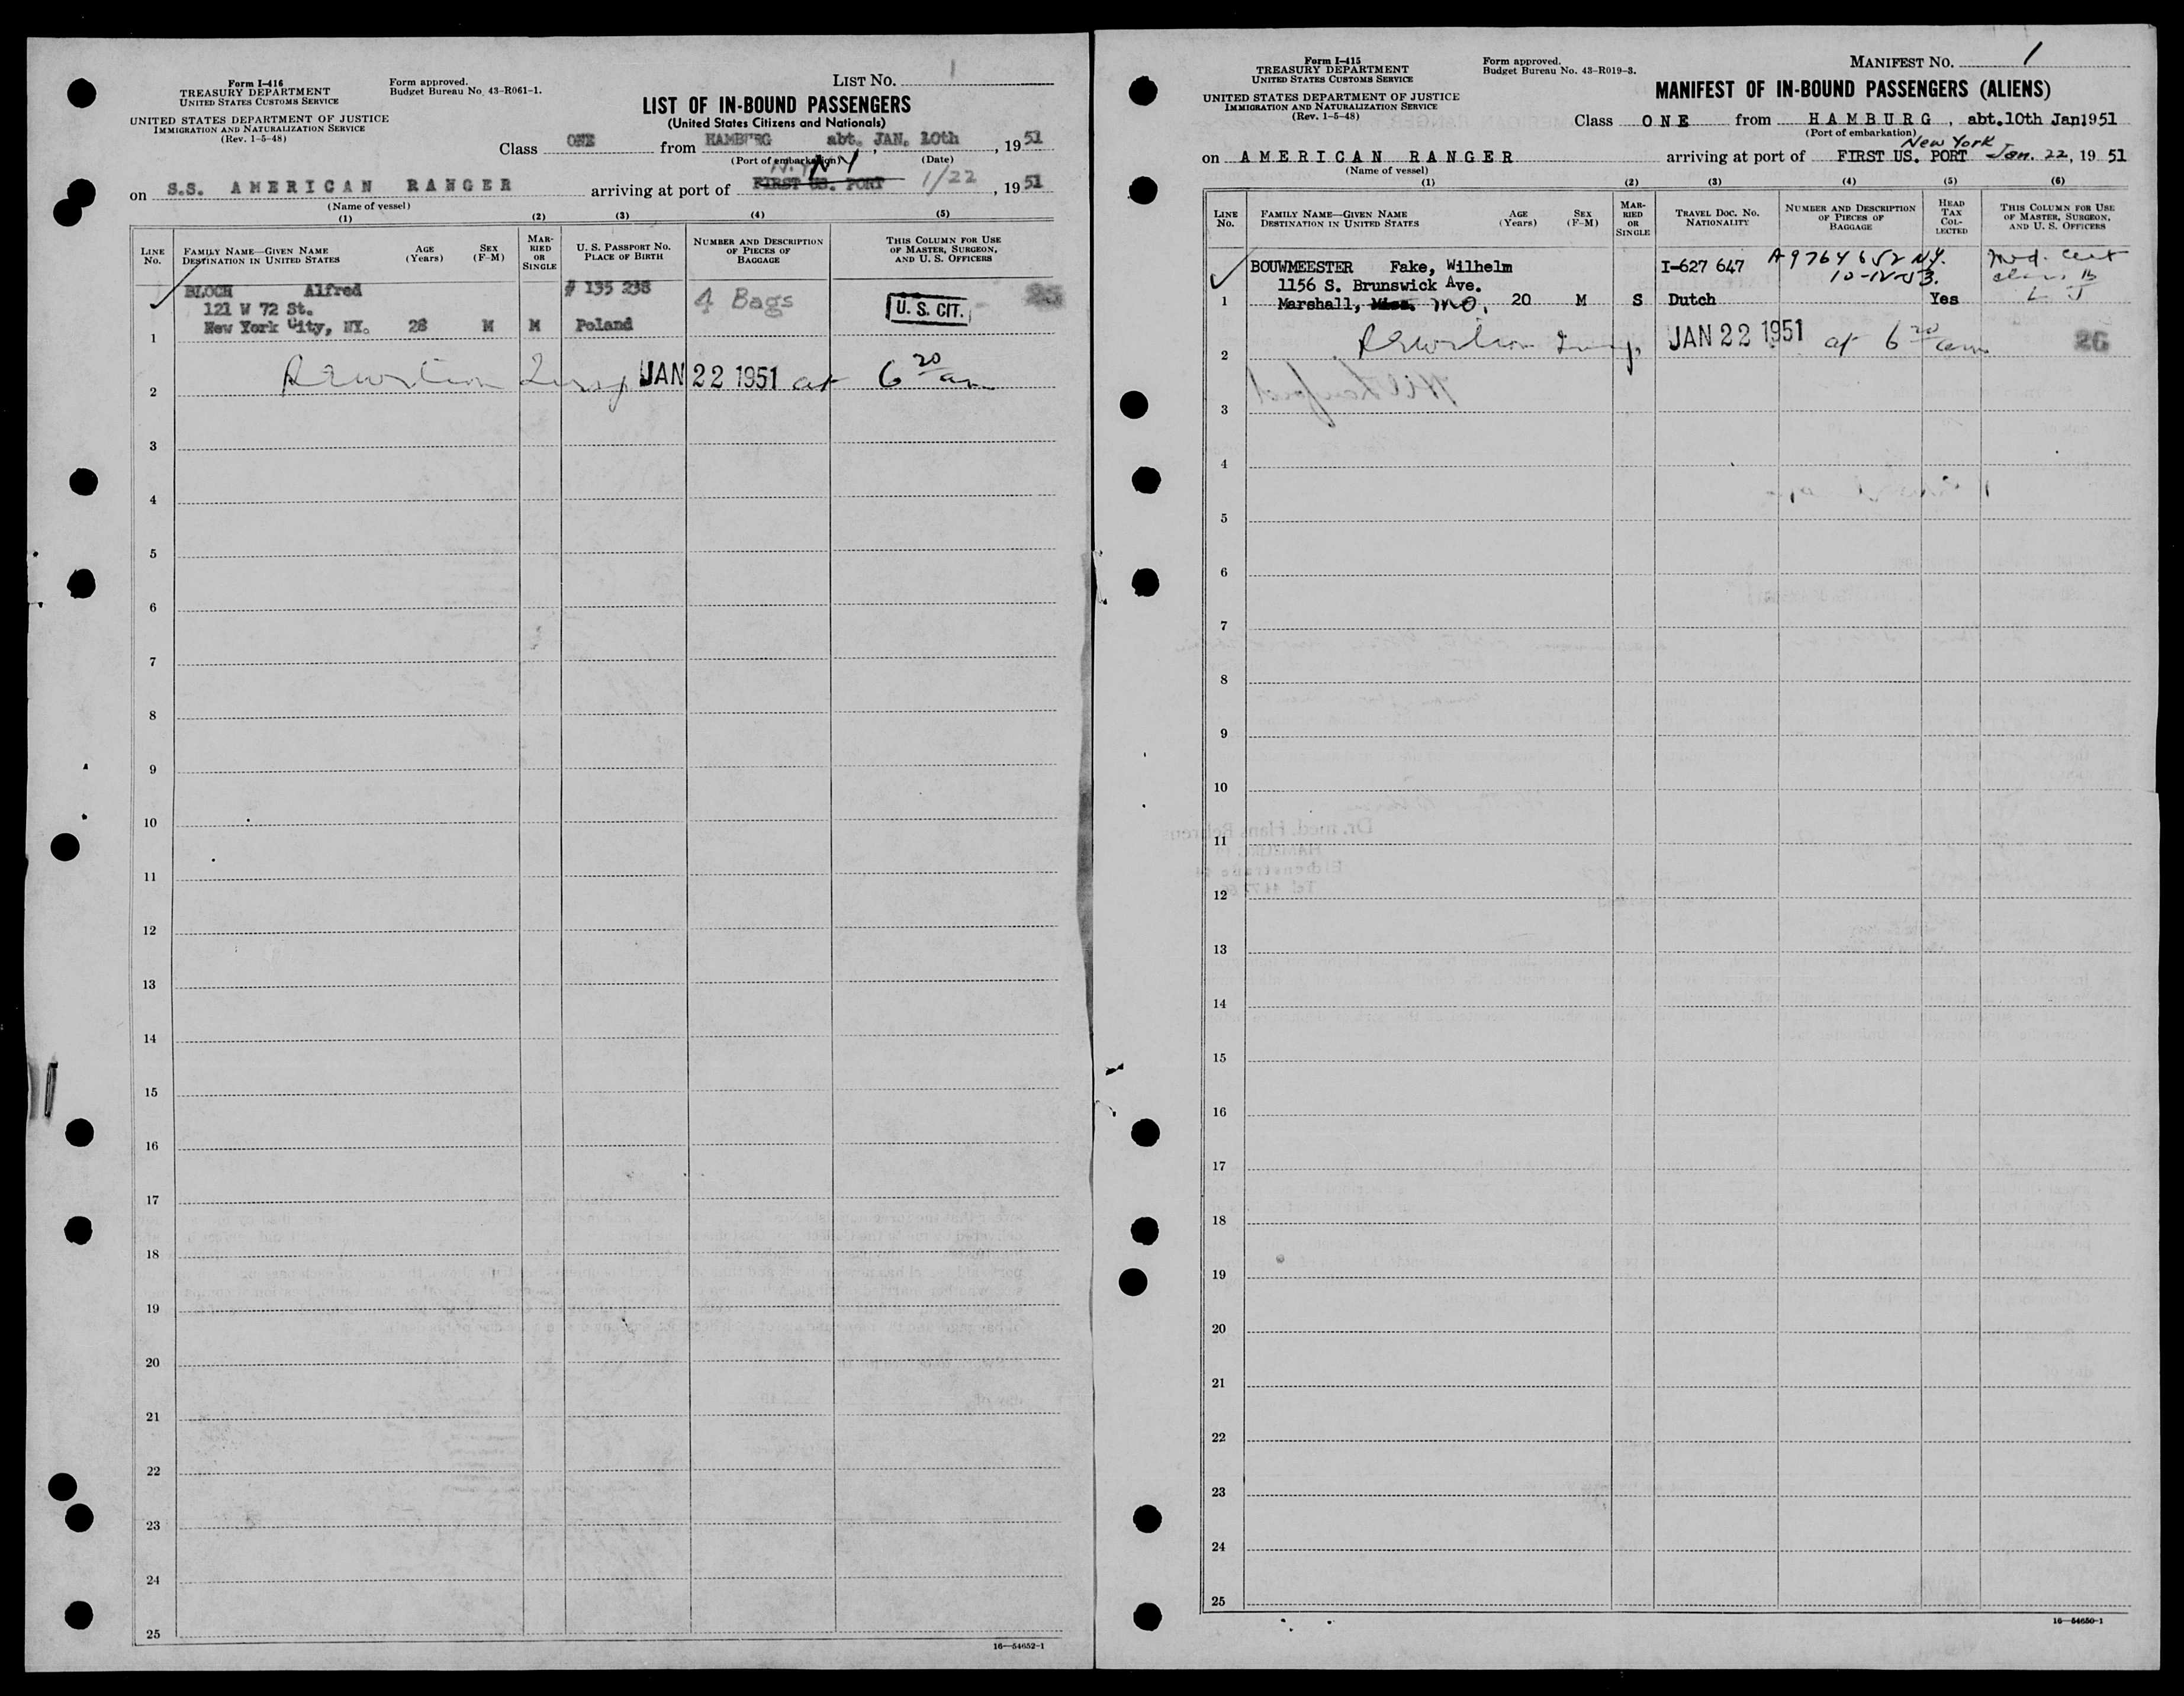 Form I-416
TREASURY DEPARTMENT
UNITED STATES CUSTOMS SERVICE
UNITED STATES DEPARTMENT OF JUSTICE
IMMIGRATION AND NATURALIZATION SERVICE
(Rev. 1-5-48)
Form approved.
Budget Bureau No. 43-R061-1.
LIST NO. 1
LIST OF IN-BOUND PASSENGERS
(United States Citizens and Nationals)
Class ONE from HAMBURG abt. JAN. 10th, 1951
(Port of embarkation) (Date)
N.Y. NY
on S.S. AMERICAN RANGER arriving at port of FIRST US. PORT 1/22, 1951
(Name of vessel)
(1) (2) (3) (4) (5)
LINE NO.
FAMILY NAME—GIVEN NAME
DESTINATION IN UNITED STATES
AGE (Years)
SEX (F-M)
MARRIED OR SINGLE
U. S. PASSPORT NO.
PLACE OF BIRTH
NUMBER AND DESCRIPTION OF PIECES OF BAGGAGE
THIS COLUMN FOR USE OF MASTER, SURGEON, AND U. S. OFFICERS
BLOCH Alfred # 135 238
121 W 72 St. 4 Bags U. S. CIT. 25
1 New York City, NY. 28 M M Poland
2 JAN 22 1951 at 6 20 am
3
4
5
6
7
8
9
10
11
12
13
14
15
16
17
18
19
20
21
22
23
24
25
16—54652-1
Form I-415
TREASURY DEPARTMENT
UNITED STATES CUSTOMS SERVICE
UNITED STATES DEPARTMENT OF JUSTICE
IMMIGRATION AND NATURALIZATION SERVICE
(Rev. 1-5-48)
Form approved.
Budget Bureau No. 43-R019-3.
MANIFEST NO. 1
MANIFEST OF IN-BOUND PASSENGERS (ALIENS)
Class ONE from HAMBURG, abt.10th Jan1951
(Port of embarkation)
New York
on AMERICAN RANGER arriving at port of FIRST US. PORT Jan. 22, 1951
(Name of vessel)
(1) (2) (3) (4) (5) (6)
LINE NO.
FAMILY NAME—GIVEN NAME
DESTINATION IN UNITED STATES
AGE (Years)
SEX (F-M)
MARRIED OR SINGLE
TRAVEL DOC. NO.
NATIONALITY
NUMBER AND DESCRIPTION OF PIECES OF BAGGAGE
HEAD TAX COLLECTED
THIS COLUMN FOR USE OF MASTER, SURGEON, AND U. S. OFFICERS
BOUWMEESTER Fake, Wilhelm I-627 647 A9764652 N.Y. Med. Cert
1156 S. Brunswick Ave. 10-12-53. class B
1 Marshall, Miss. MO. 20 M S Dutch Yes
2 JAN 22 1951 at 6 20 am 26
3
4
5
6
7
8
9
10
11
12
13
14
15
16
17
18
19
20
21
22
23
24
25
16—54650-1